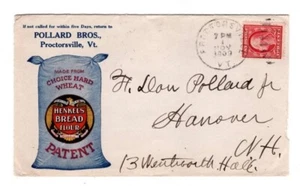 If not called for within five Days, return to
POLLARD BROS.,
Proctorsville, Vt.
MADE FROM
CHOICE HARD
WHEAT
HENKEL'S
BREAD
FLOUR
PATENT
7 PM
NOV
VT.
H. Don Pollard Jr
Hanover
N.H.
13 Wentworth Hall.